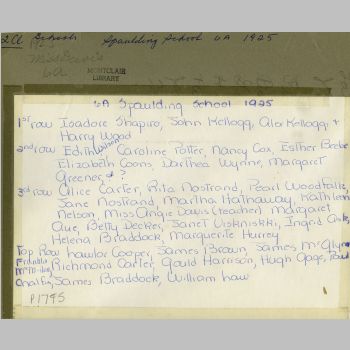 Schools Spaulding School 6A 1925
MONTCLAIR
LIBRARY
6A Spaulding School 1925
1st row Isadore Shapiro, John Kellogg, Alex Kellogg, +
Harry Wood
2nd row Edith Caroline Potter, Nancy Cox, Esther Beebe
Elizabeth Coons, Darthea Wynne, Margaret
Greener, + ?
3rd row Alice Carter, Rita Nostrand, Pearl Woodfalk,
Jane Nostrand, Martha Hathaway, Kathleen
Nelson, Miss Angie Davis (teacher) Margaret
Que, Betty Decker, Janet Ingrid
Helena Braddock, Marguerite Hurrey
Top Row Cooper, James Brown, James McGlynn
Franklin Richmond Carter, Gould Harrison, Hugh Gage, Paul
James Braddock, William Law
P1795